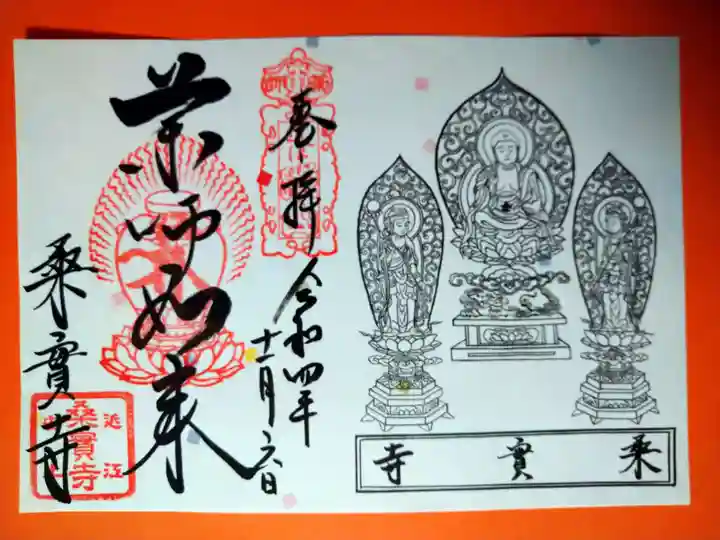 奉拝
令和四年
十一月六日
薬師如来
桒實寺
近江
桑實寺
桒實寺